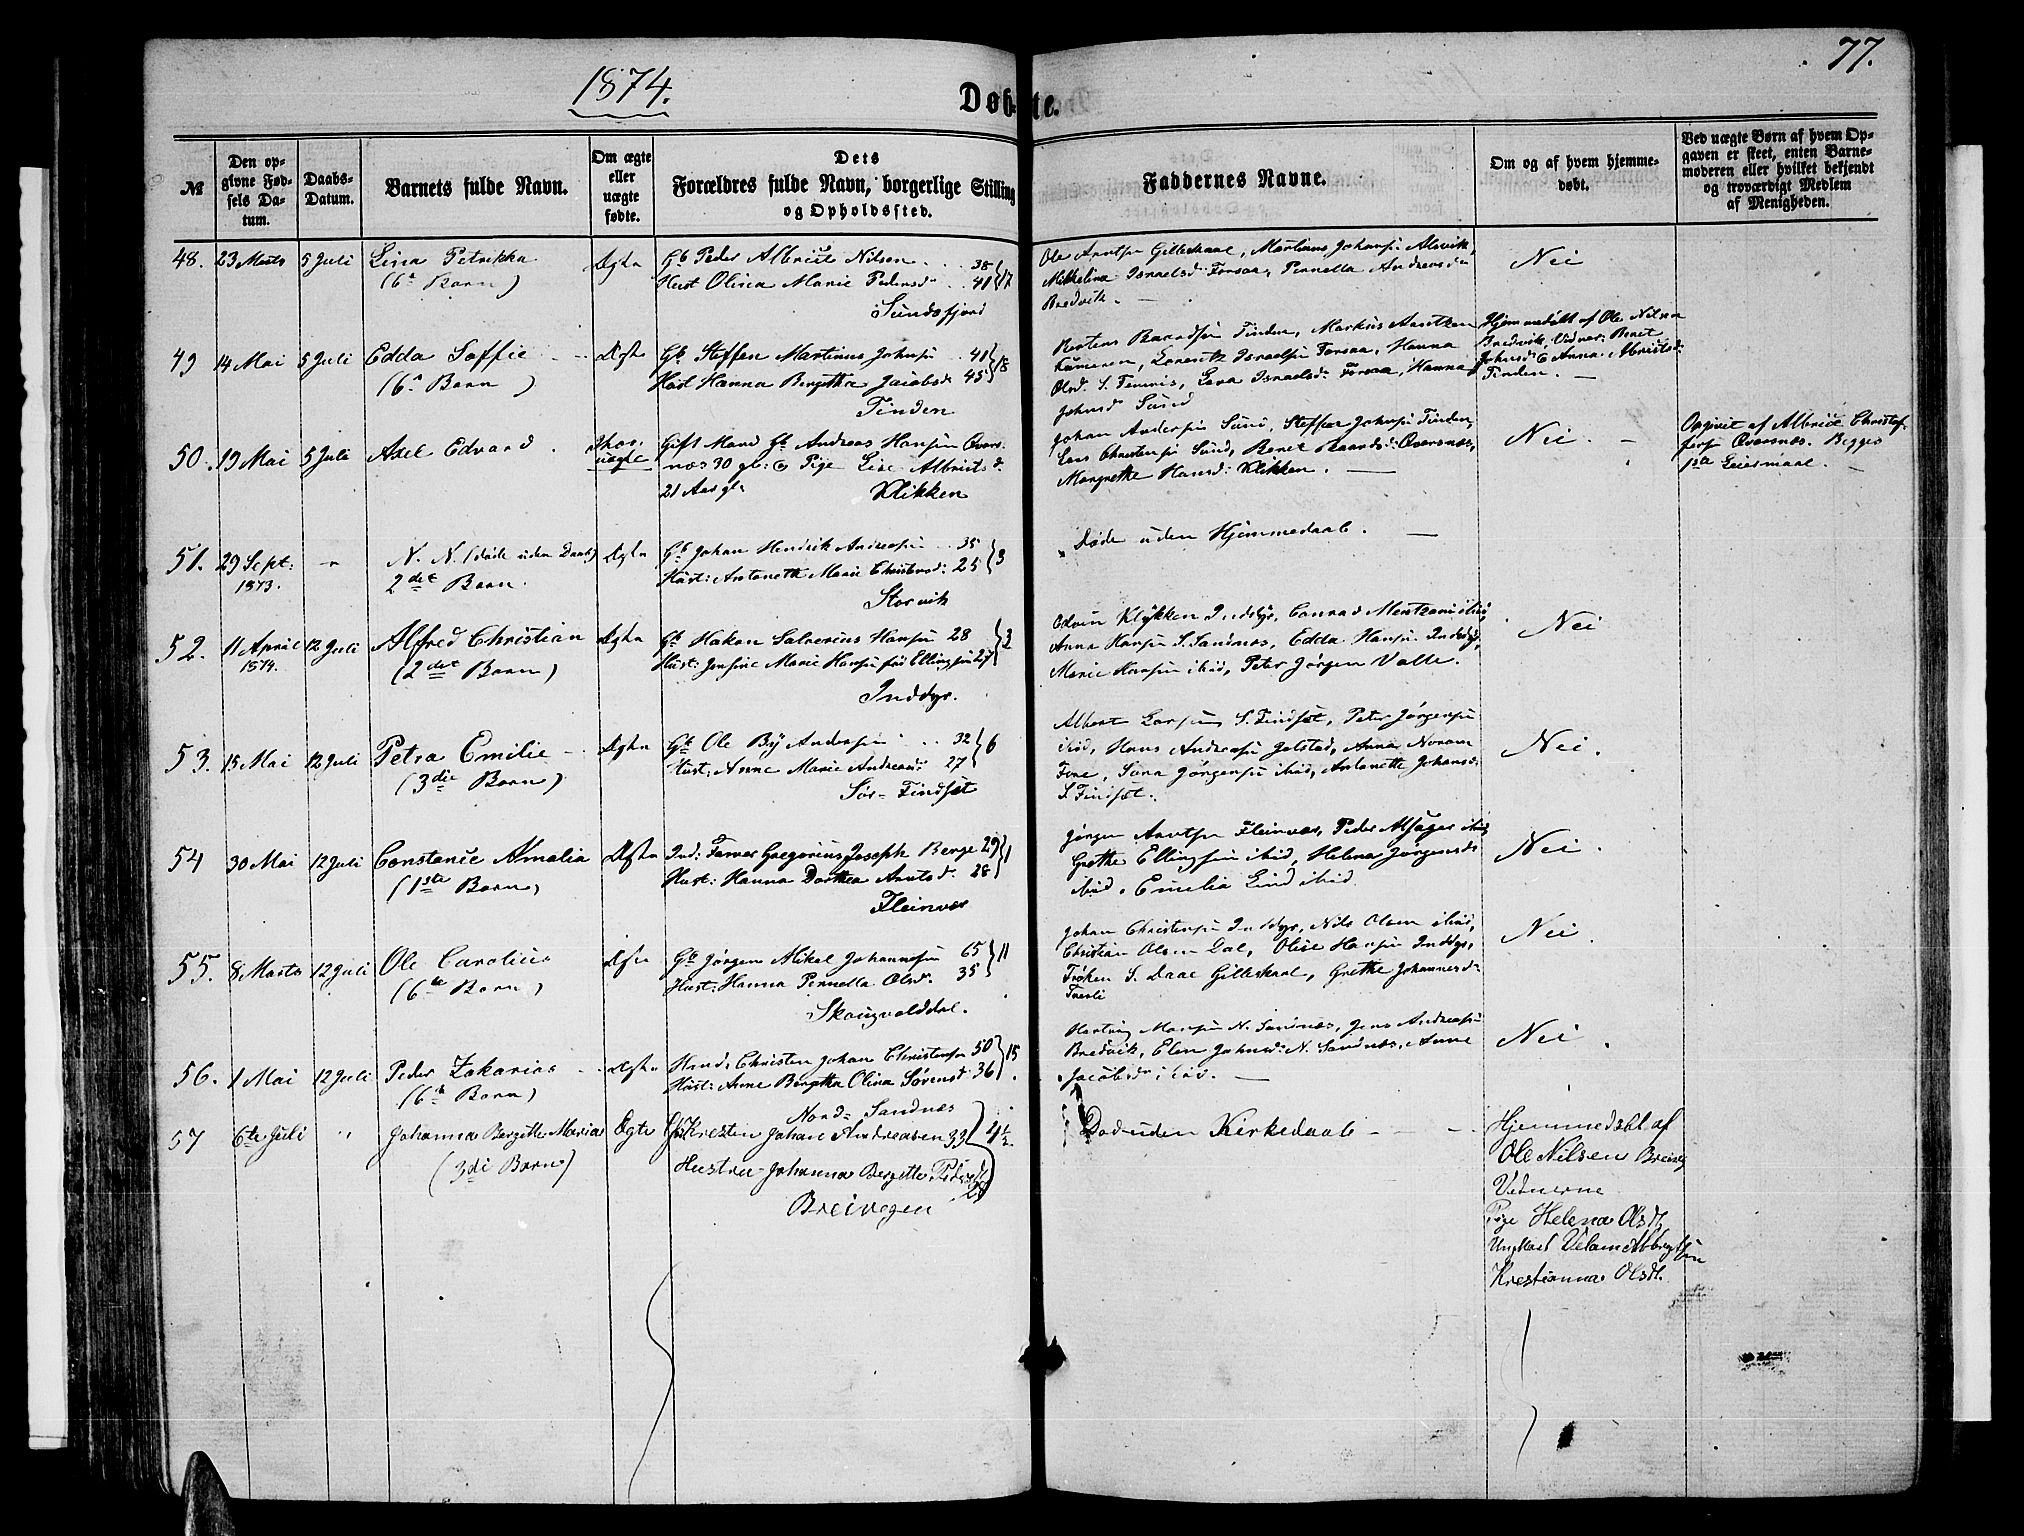 1874.
77.
Døbte.
№
Den opgivne Fødsels Datum.
Daabs-Datum.
Barnets fulde Navn.
Om ægte eller uægte fødte.
Dets Forældres fulde Navn, borgerlige Stilling og Opholdssted.
Faddernes Navne.
Om og af hvem hjemmedøbt.
Ved uægte Børn af hvem Opgaven er skeet, enten Barnemoderen eller hvilket bekjendt og troværdigt Medlem af Menigheden.
48. 23 Marts 5 Juli Lina Petrikka Ægte Gb Peder Albrict Nilsen 38
(6te Barn) Hust Olina Marie Pedersdr 41 } 17
Sundsfjord
Ole Arntsen Gilleskaal, Martinus Johansen Alsvik,
Mikkelina Israelsd. Forsaa, Pernella Andreasdr
Bredvik.
Nei
49 14 Mai 5 Juli Edda Soffie Ægte Gb Steffen Martinus Johnsen 41
(6te Barn) Hust Hanna Bergitha Jacobsdr 45 } 18
Tinden
Tinden, Markus Arntzen
Lorentz Israelsen Forsaa, Hanna
Olsd. S. Lava Israelsd. Forsaa, Hanna
Johnsd Sund
Hjemmedøbt af Ole Nilsen
Bredvik, Vidner: Beret
Johnsd. & Anna
Tinden.
50. 19 Mai 5 Juli Axel Edvard uægte Gift Mand Gb Andreas Hansen Øvers-
næs 30 gl: & Pige Lise Albrictsd.
21 Aar gl. Klikken
Johan Andersen Sund, Steffen Johnsen Tinden,
Lars Christensen Sund, Beret Baardsd. Øversnæs,
Margrethe Hansd: Klikken.
Nei.
Opgivet af Albrict Christof-
fersen Øversnæs. Begges
1ste Leiermaal.
51. 29 Sept: 1873. N. N. (døde uden Daab) Ægte Gb Johan Hendrik Andreasen 35
2det Barn. Hust: Antonette Marie Christensd: 25 } 3
Storvik
Døde uden Hjemmedaab.
52. 11 April 1874. 12 Juli Alfred Christian Ægte Gb Hakon Hansen 28
(2det Barn) Hust: Josefine Marie Hansen fød Ellingsen 27 } 3
Inddyr.
Edvin Klykken Inddyr, Conrad
Anna Hansen S. Sandnæs, Edda Hansen Inddyr,
Marie Hansen ibid, Peter Jørgen Valle.
Nei
53. 15 Mai 12 Juli Petra Emilie Ægte Gb Ole By Andersen 32
(3die Barn) Hust: Anne Marie Andreasd: 27 } 6
Sør-Findset
Albert Larsen S. Findset, Peter Jørgensen
ibid, Hans Andreasen Anna
Fore, Jørgensen ibid, Antonette Johansd.
S. Findset.
Nei.
54 30 Mai 12 Juli Constance Amalia Ægte Ind: Farver Gregorius Joseph Berge 29
(1ste Barn) Hust: Hanna Dorthea Arntsd. 28 } 1
Fleinvær
Jørgen Arntsen Fleinvær, Peder ibid,
Grethe Ellingsen ibid, Helena Jørgensd
ibid. Emelia Lind ibid
Nei.
55. 8 Marts 12 Juli Ole Carolius Ægte Gb Jørgen Mikal Johannesen 65
(6te Barn) Hust: Hanna Pernella Olsd. 35 } 11
Skougvolddal.
Johan Christensen Inddyr, Nils Olsen ibid,
Christian Olsen Dal, Olise Hansen Inddyr,
Frøken S. Daae Gilleskaal, Grethe Johannesd.
Nei.
56. 1 Mai 12 Juli Peder Zakarias Ægte Christen Johan Christensen 50
(6te Barn) Hust: Anne Bergitha Olina Sørensd 36 } 15
Nord-Sandnæs
Hansen N. Sandnæs, Jens Andreasen
Bredvik, Elen Johnsd. N. Sandnæs, Anne
Jacobsdr ibid.
Nei.
57 6te Juli Johanna Bergitte Maria Ægte Kresten Johan Andreasen 33 } 4½
(3di Barn) Hustru Johanna Bergette
Breivegen
Død uden Kirkedaab
Hjemmedøbt af
Ole Nilsen
Vednerne
Pige Helena Olsdt,
Ungkarl
Krestianna Olsdt.